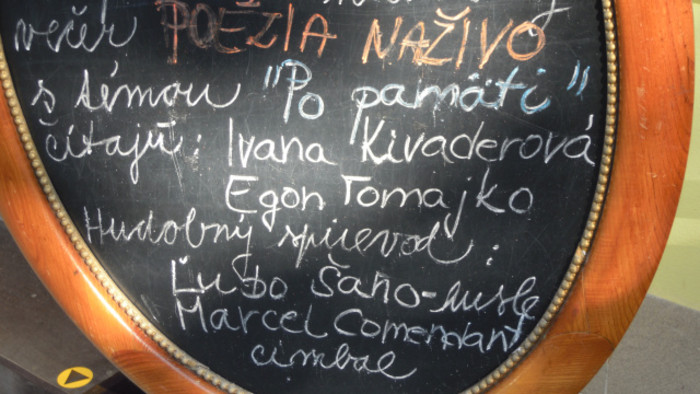 večer POÉZIA NAŽIVO
s témou "Po pamäti"
čítajú: Ivana Kivaderová
Egon Tomajko
Hudobný sprievod:
Ľubo Šaňo-husle
Marcel Comendant
cimbal